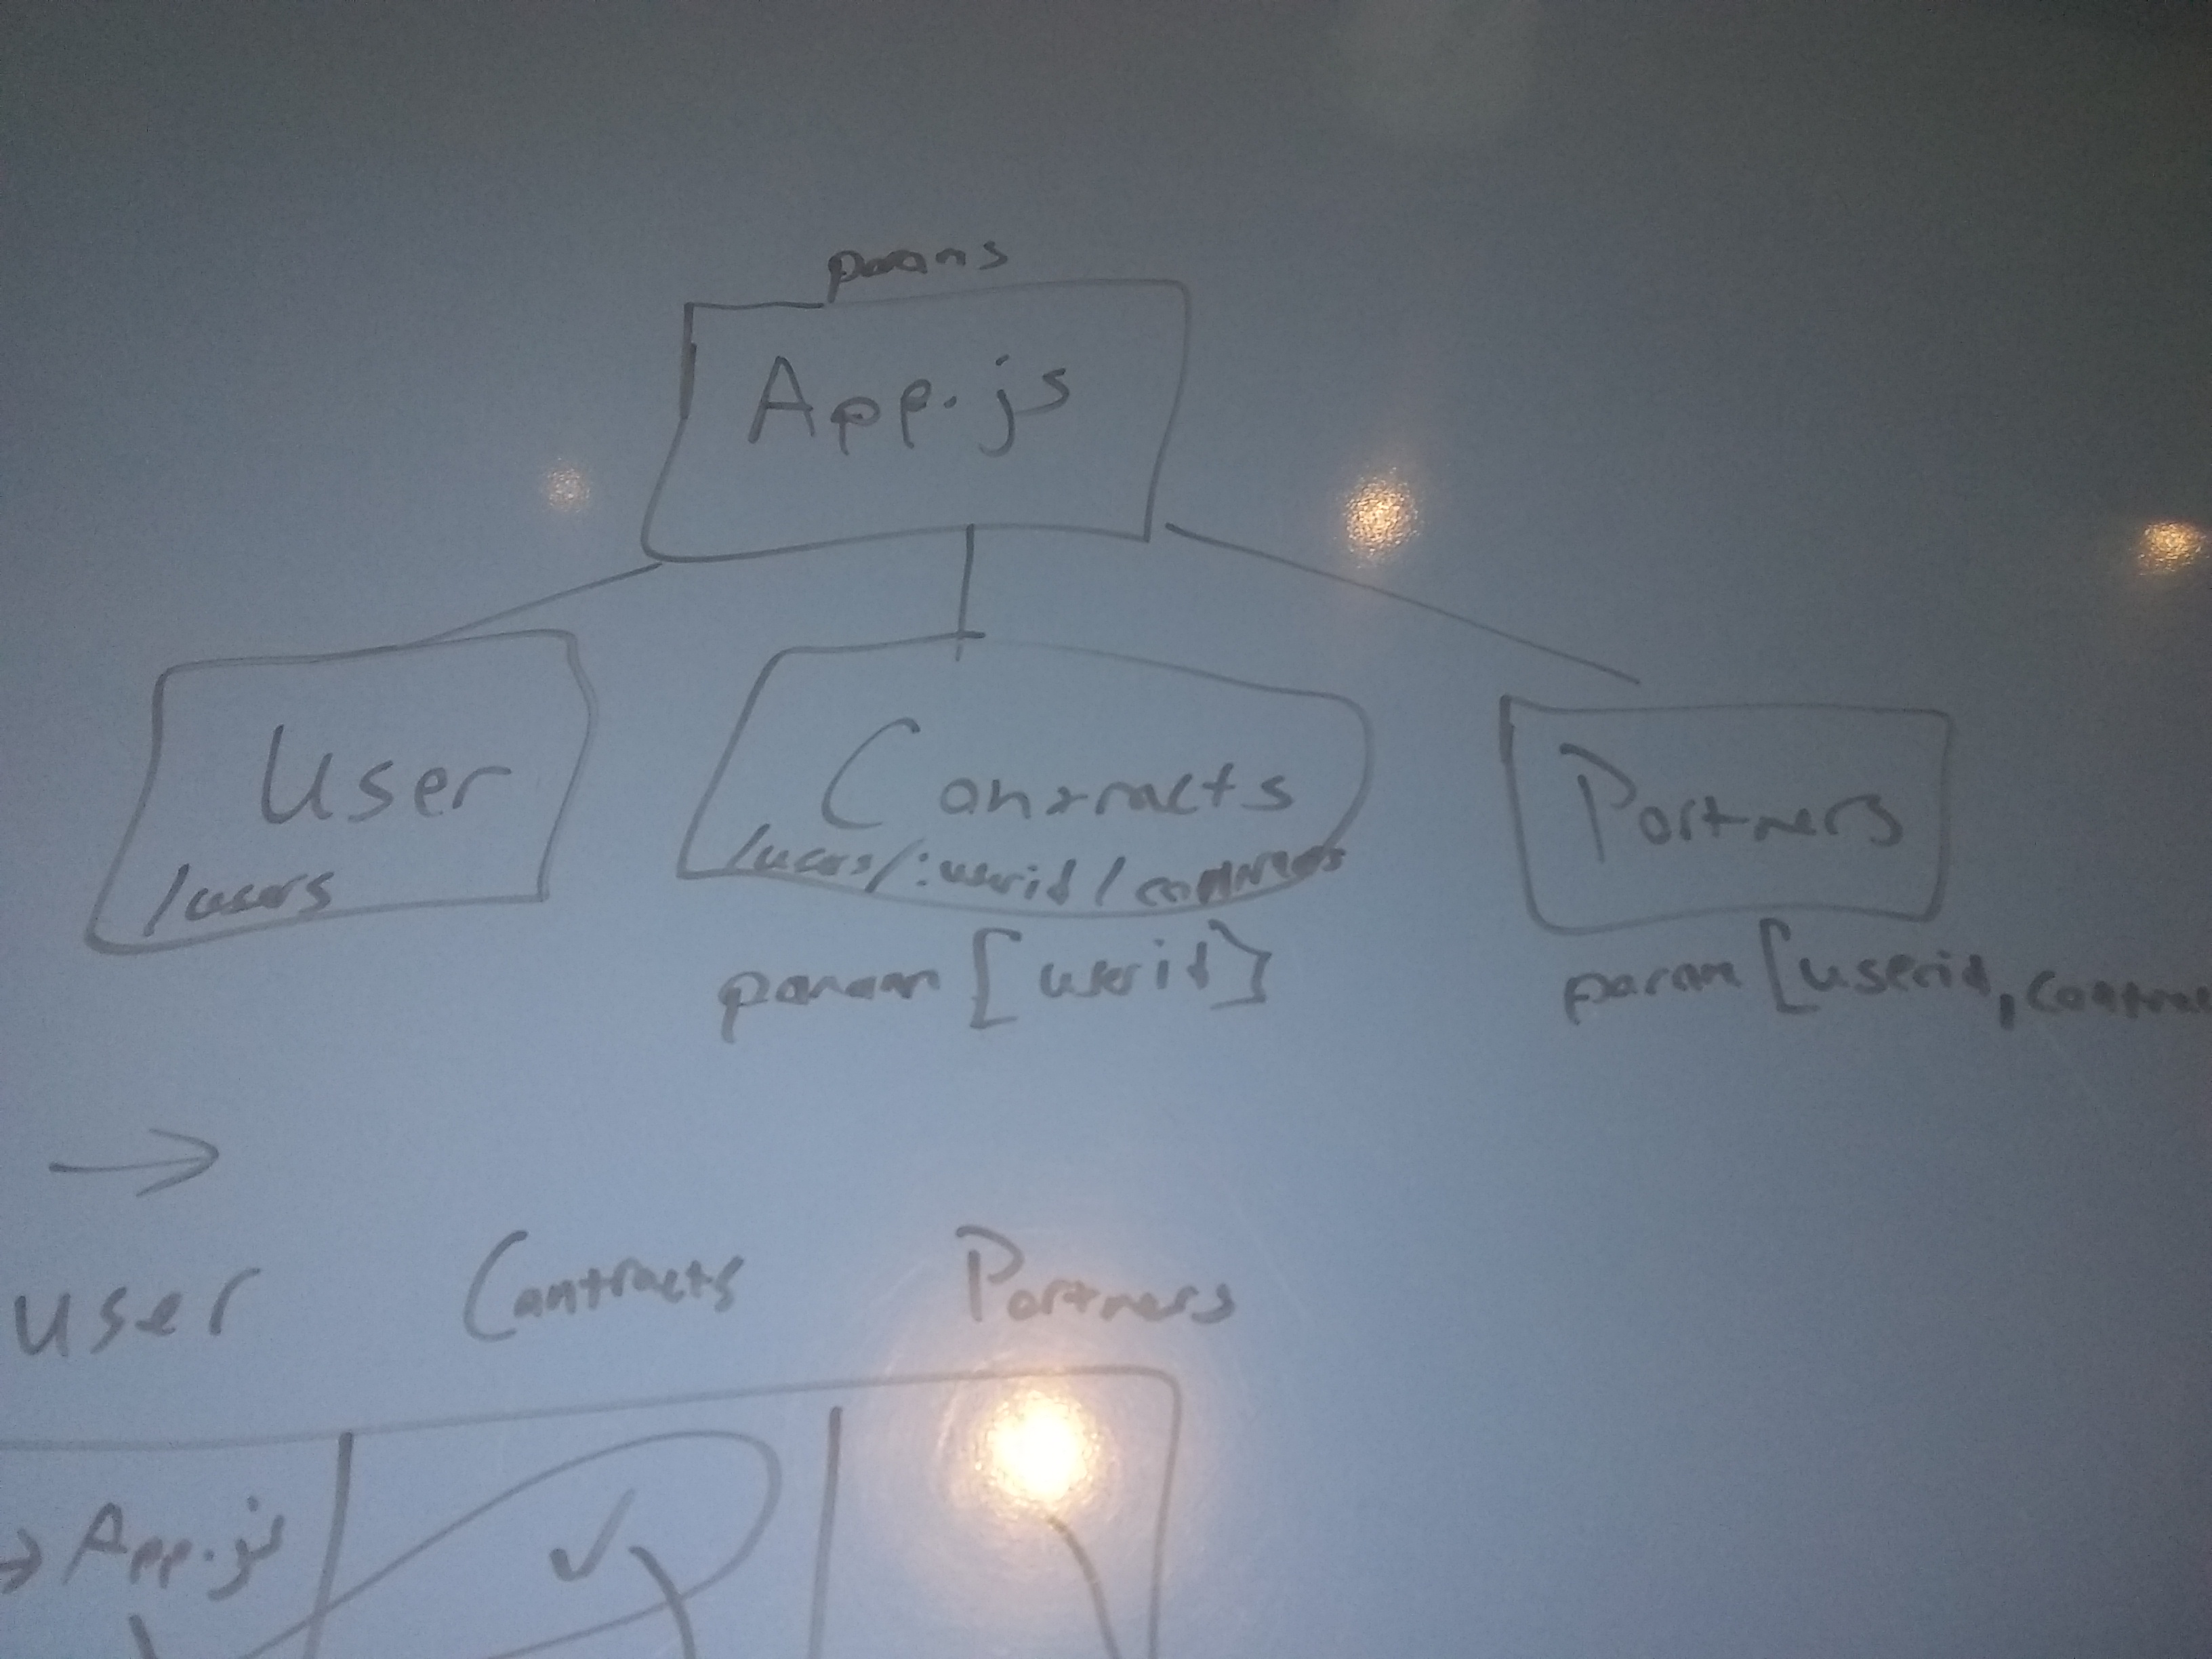 params
App.js
User
/users
Contracts
/users/:userid/contracts
Partners
param [userid]
param [userid, contrac
user Contracts Partners
→ App.js ✓